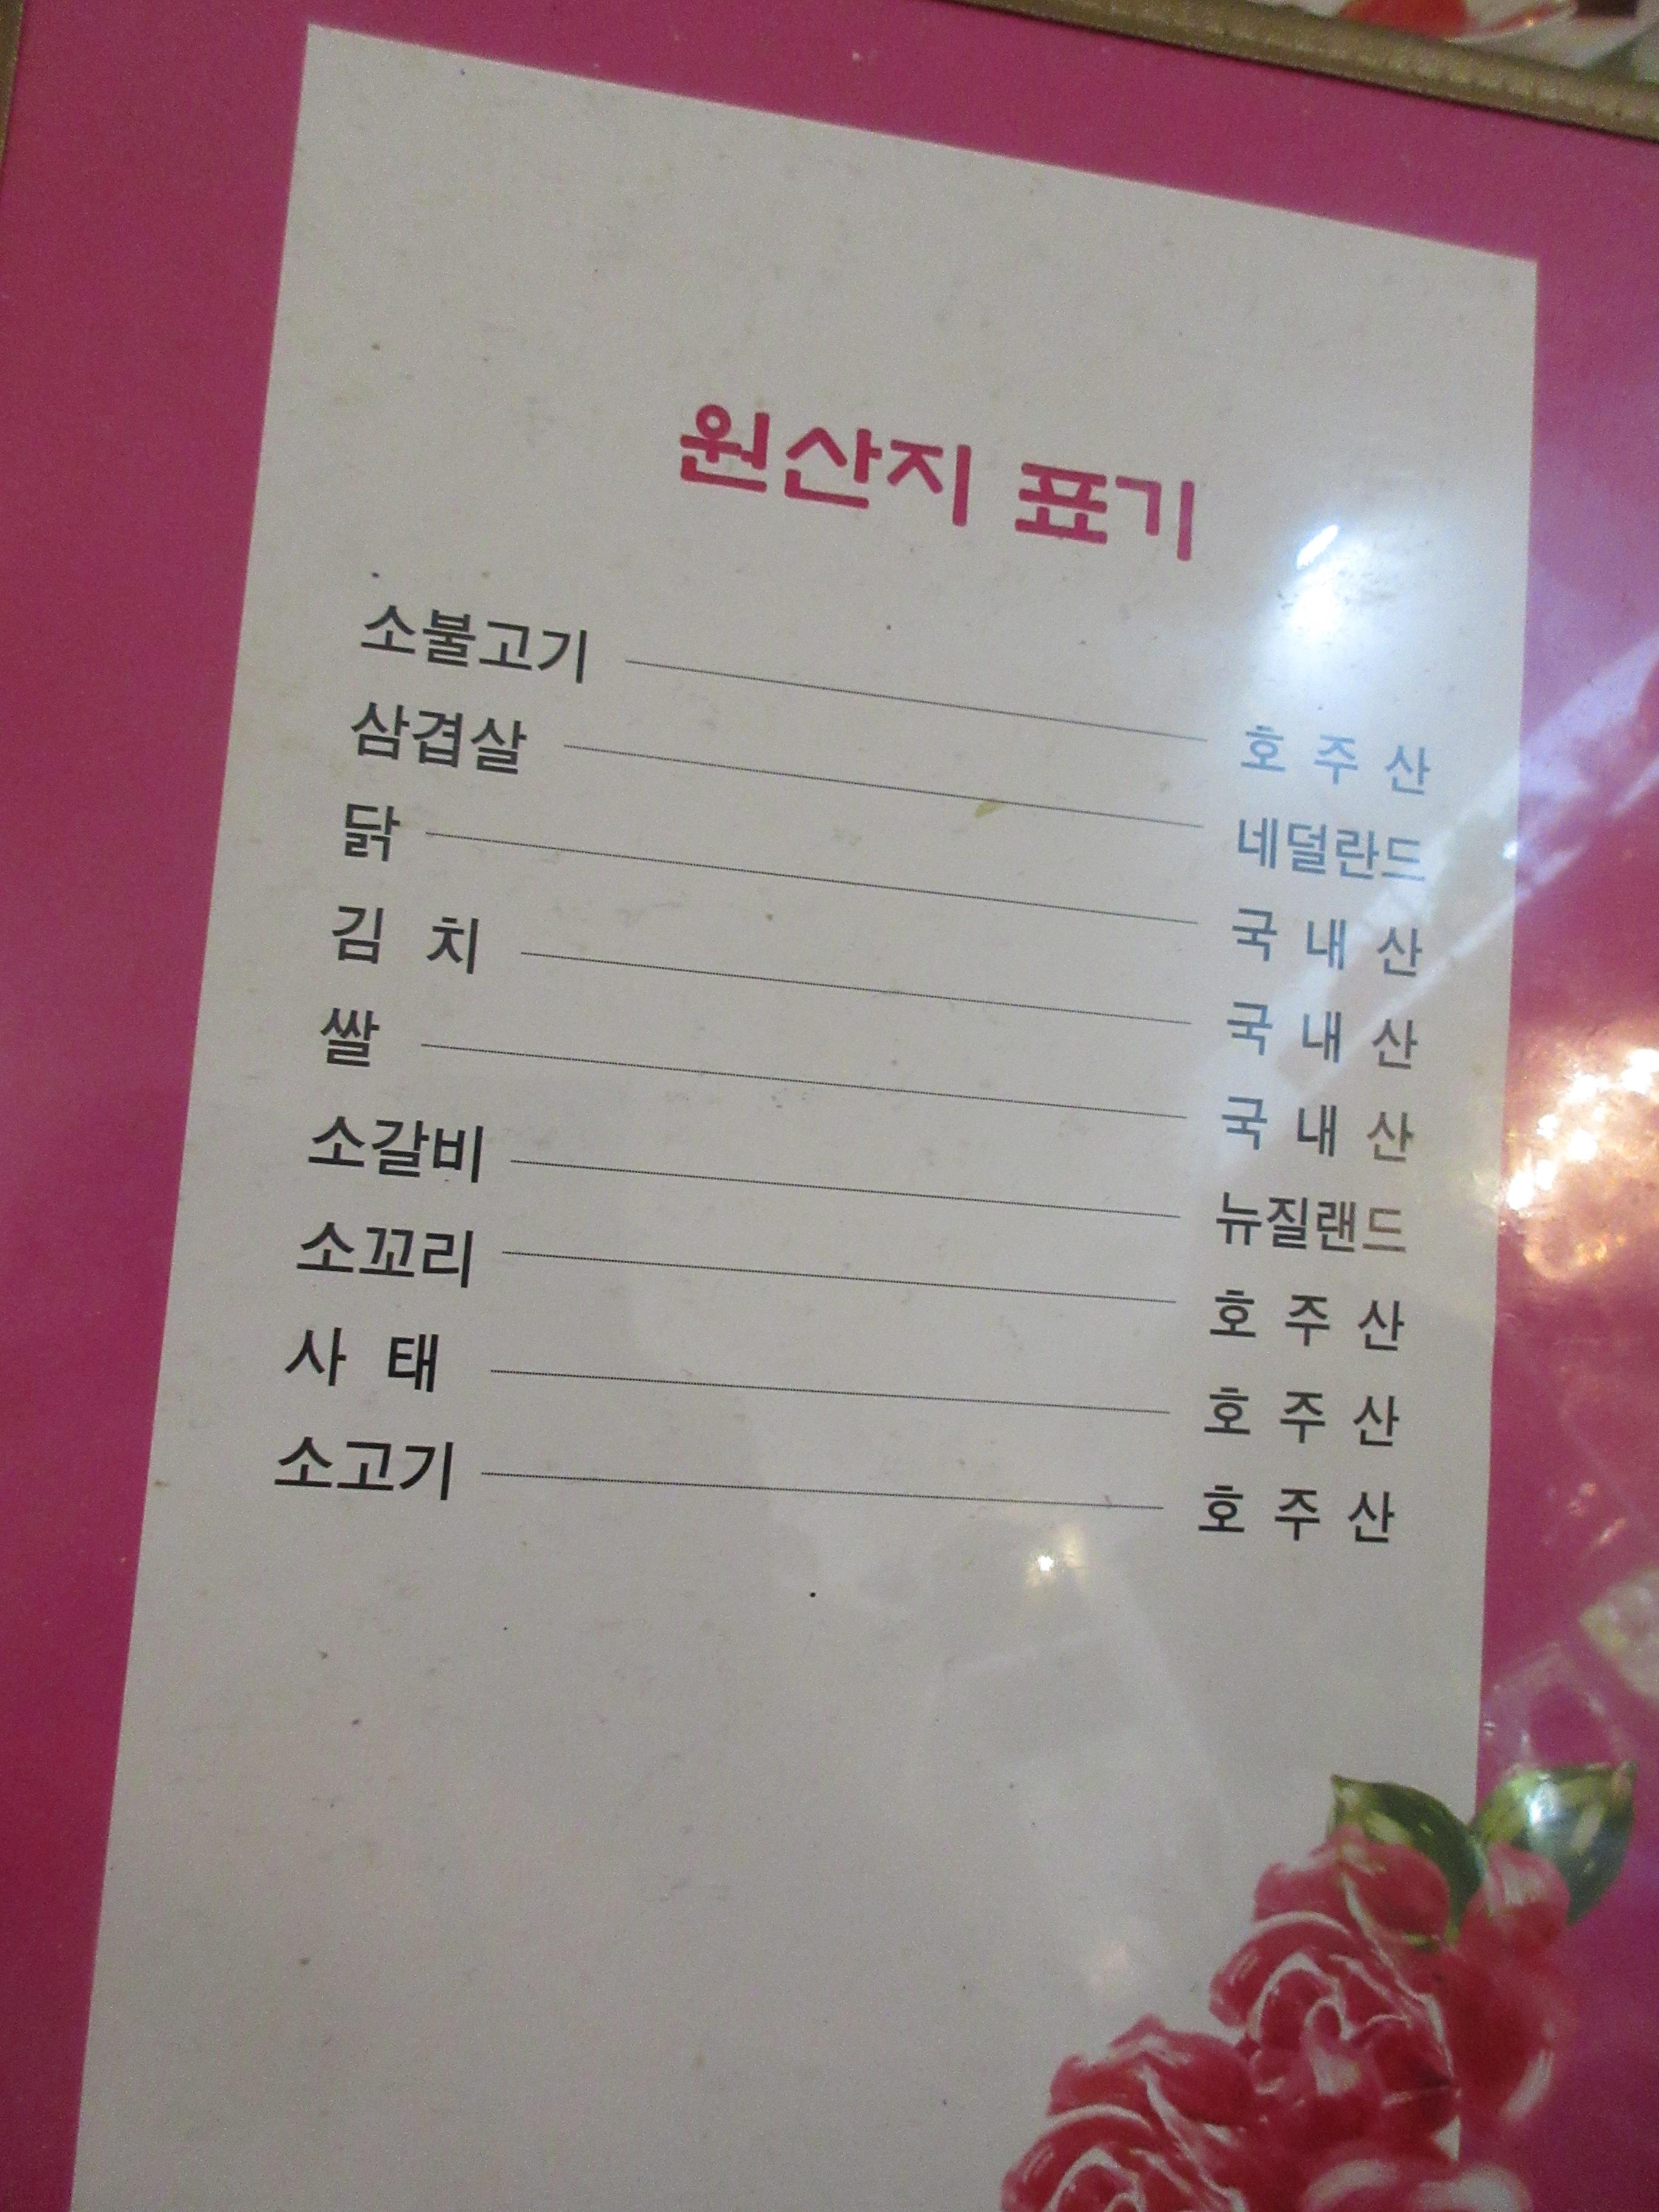 원산지 표기
소불고기 호 주 산
삼겹살 네덜란드
닭 국 내 산
김 치 국 내 산
쌀 국 내 산
소갈비 뉴질랜드
소꼬리 호 주 산
사 태 호 주 산
소고기 호 주 산